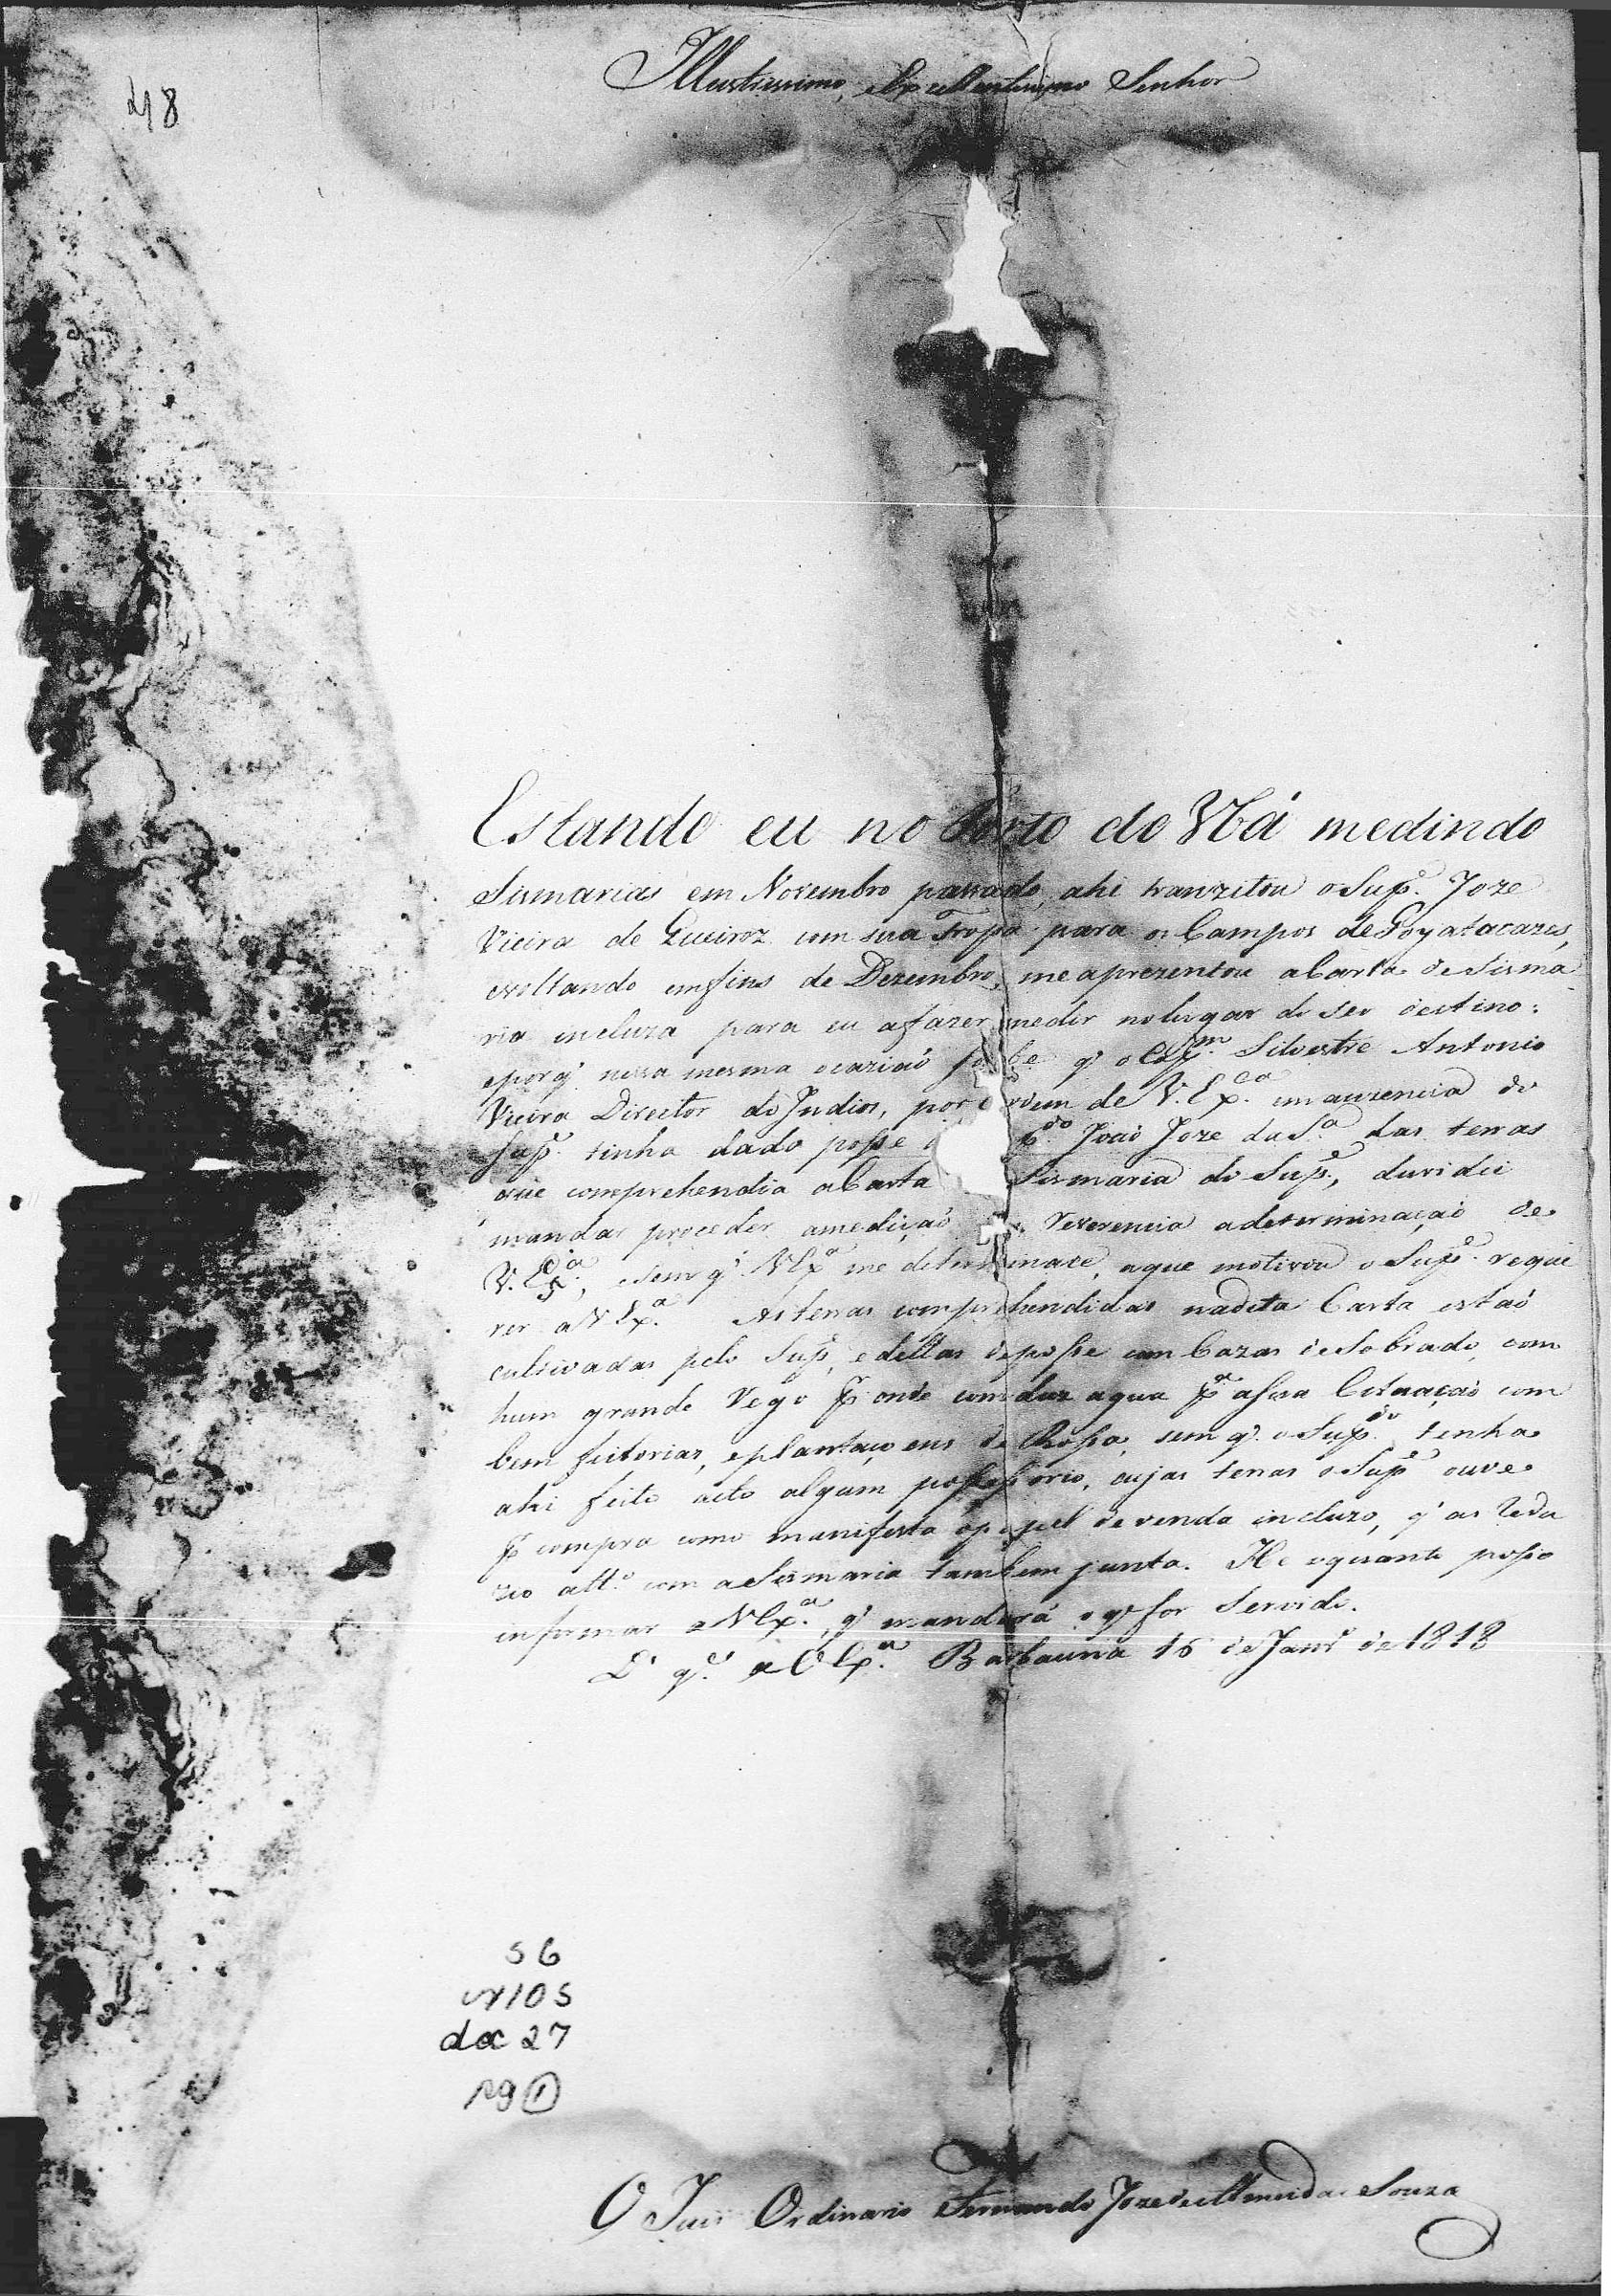 48
Illustrissimo, e Excellentissimo Senhor
Estando eu no Porto do Ubá medindo
Sismarias em Novembro passado, ahi tranzitou o Supe. Joze
Vieira de Queiroz com sua Tropa para os Campos de Goyatacazes,
evoltando emfins de Dezembro, me aprezentou a Carta de Sisma
ria incluza para eu afazer medir nolugar do seo destino:
eporq' nessa mesma ocaziaõ q' o Capm. Silvestre Antonio
Vieira Director de Indios, por ordem de V. Exca. em auzencia do
Supe. tinha dado posse Joaõ Joze da Sa. das terras
que comprehendia a Carta Sismaria do Supe., duvidei
mandar proceder amediçaõ reverencia adeterminaçaõ de
V. Exca., esem q' V Exa. me determinace, aque motivou o Supe. reque
rer a V Exa. As terras comprehendidas nadita Carta estaõ
cultivadas pelo Supe., e dellas deposse com Cazas de Sobrado, com
hum grande Rego pr. onde comduz agua pa. asua Cituaçaõ com
bem feitorias, eplantaçoens de Rossa, sem q' o Supdo. tenha
ahi feito acto algum possessorio, cujas terras o Supe. ouve
pr. compra como manifesta opapel de venda incluzo, q' as redu
zio atto. com a Sismaria tambem junta. He oquanto posso
informar a V Exa., q' mandará o q' for Servido.
Ds. ge. a V Exa. Barbacena 16 de Janro. de 1818
56
cx 105
doc 27
pg 1
O Juis Ordinario Fernando Joze de Almeida e Souza